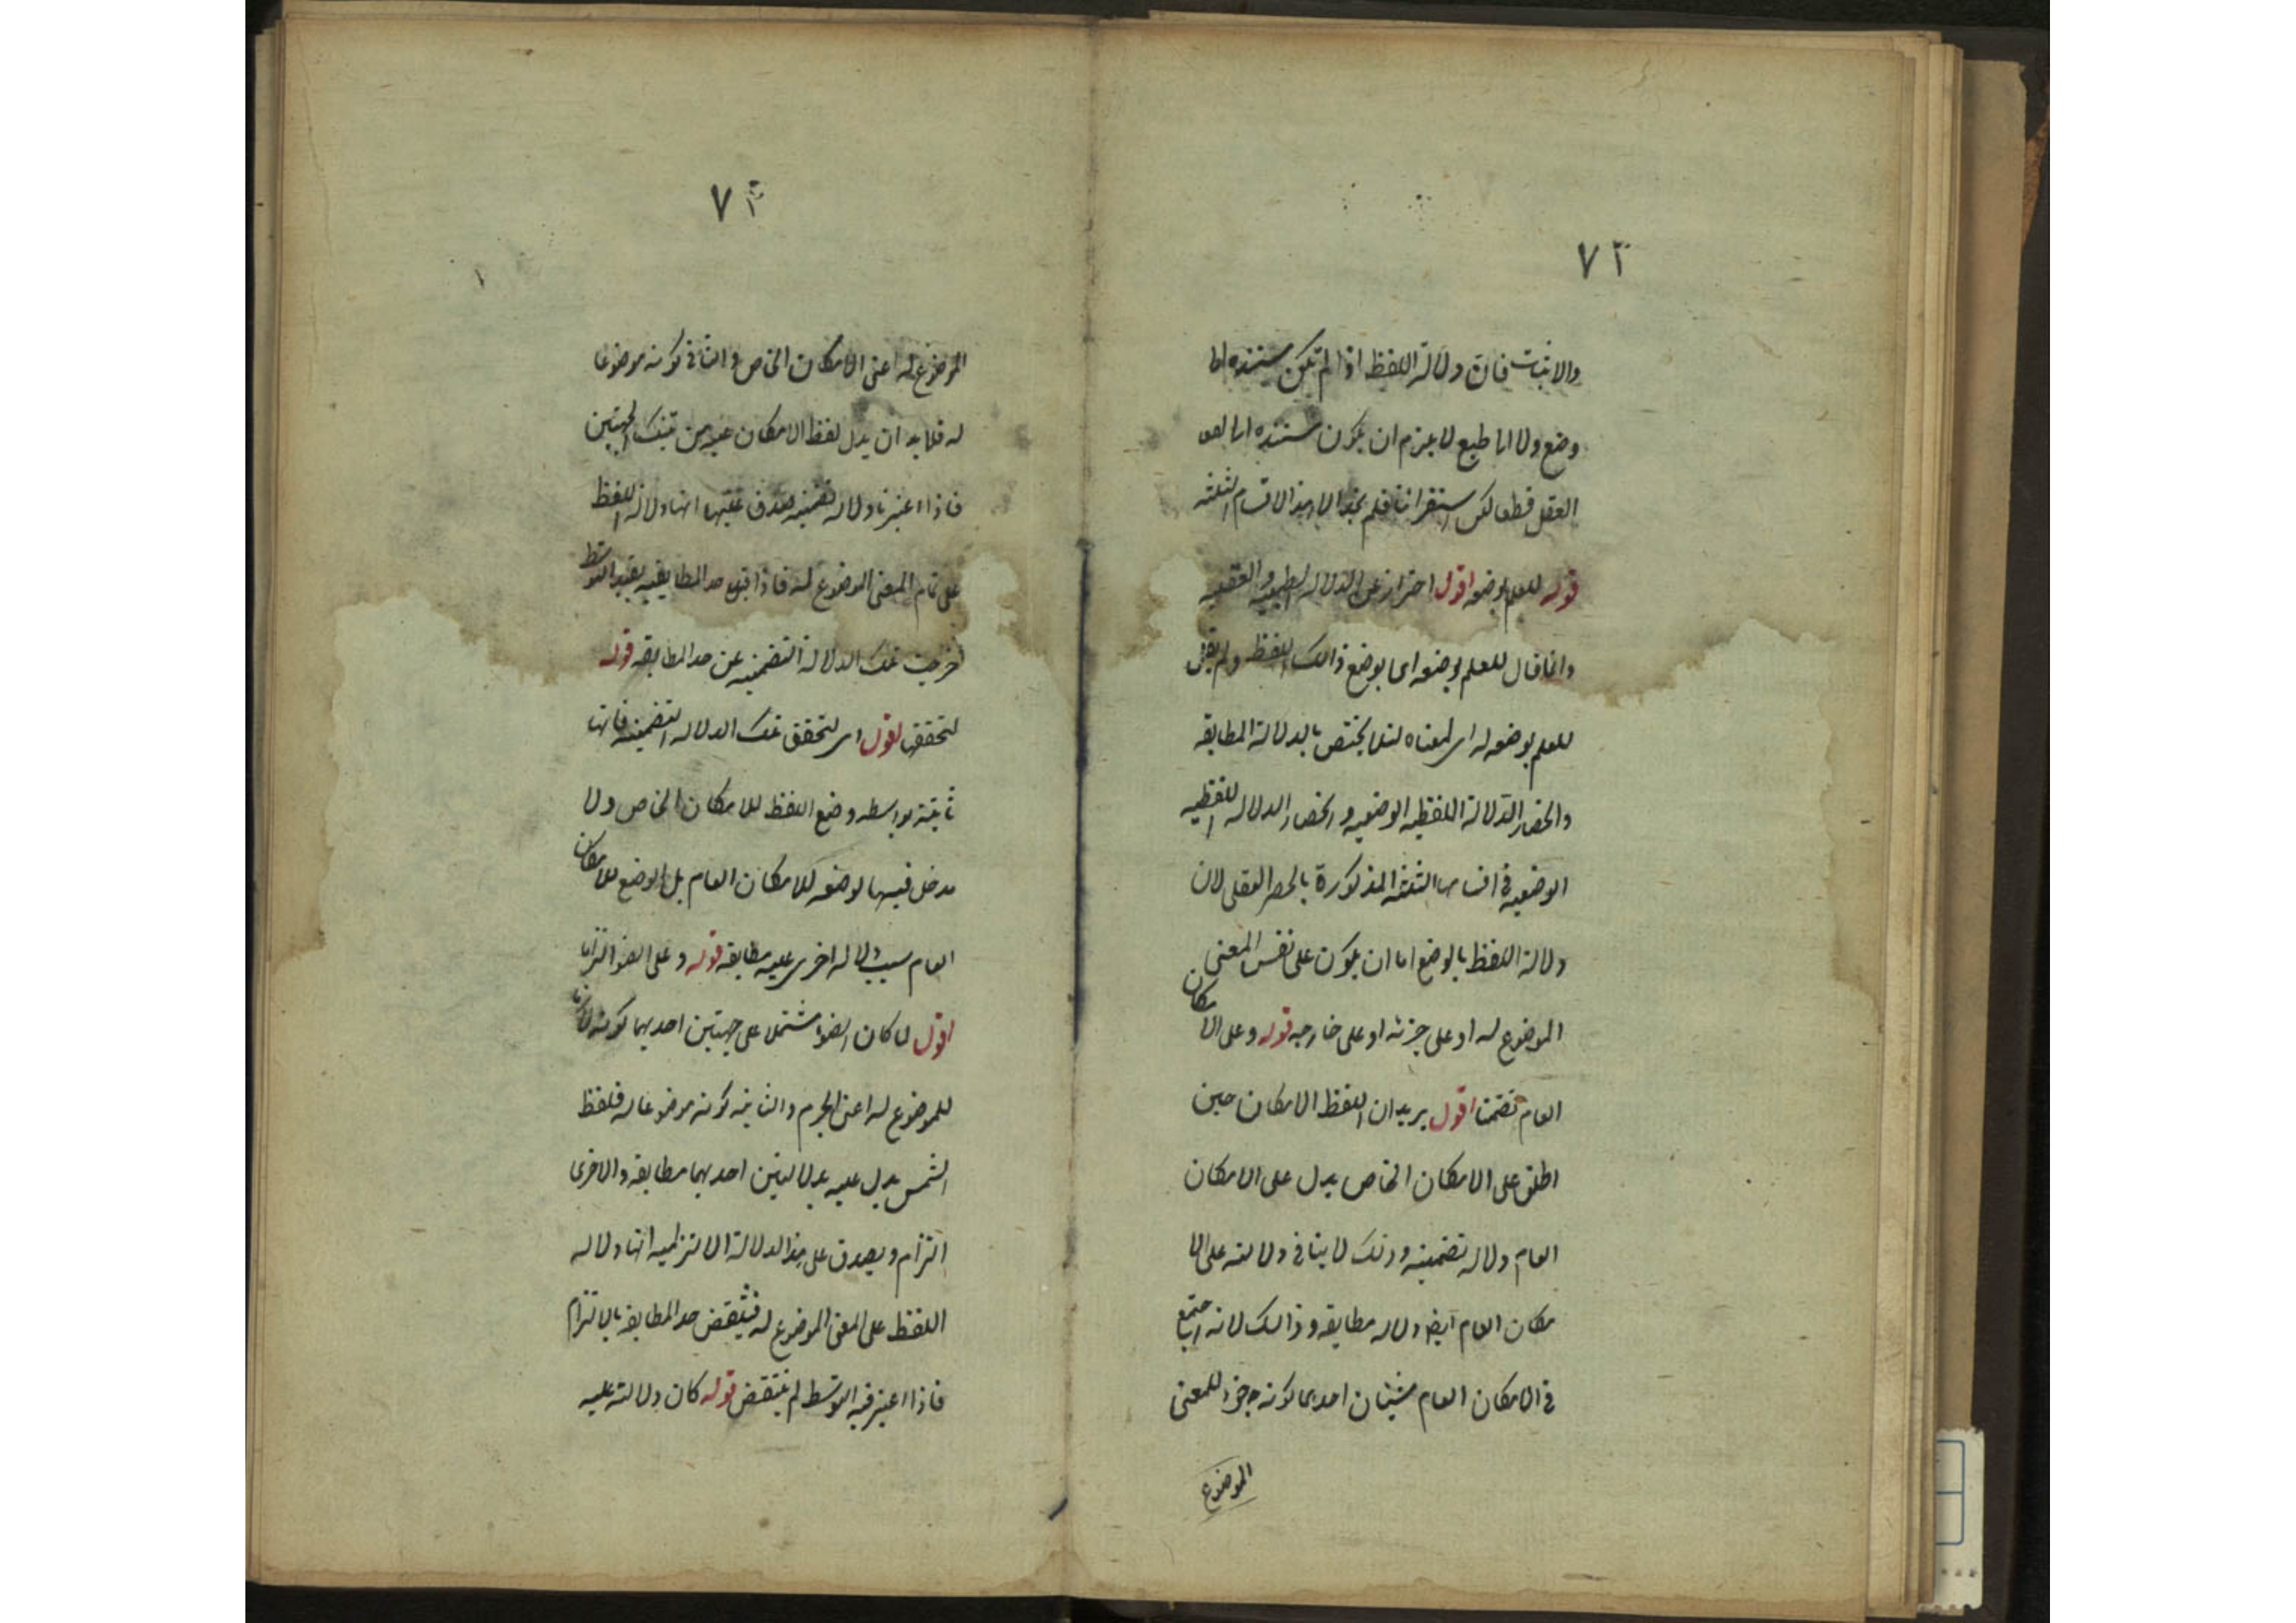 ٧٢
والاثبات فان دلالة اللفظ اذا لم تكن مستنده اما
وضع ولا اما طبع لا يلزم ان يكون مستنده الى
العقل قطعا لكن استقرانا فلم نجد الا هذا الاقسام الثلثه
قوله للعلم بوضعه اقول احتراز عن الدلاله الطبيعيه والعقليه
وانما قال للعلم بوضعه اى بوضع ذالك اللفظ ولم يقل
للعلم بوضعه له اى لمعناه لئلا يختص بالدلالة المطابقه
وانحصار الدلالة اللفظيه الوضعيه وانحصار الدلاله اللفظيه
الوضعيه فى اقسامها الثلثه المذكورة بالحصر العقلى لان
دلالة اللفظ بالوضع اما ان يكون على نفس المعنى
الموضوع له او على جزئه او على خارجه قوله وعلى الامكان
العام تضمنا اقول يريد ان اللفظ الامكان حين
اطلق على الامكان الخاص يدل على الامكان
العام دلاله تضمنيه وذلك لا ينافى دلالته على الا
مكان العام ايضا دلاله مطابقه وذالك لانه اجتمع
فى الامكان العام شيئان احدهما كونه جزء للمعنى
الموضوع
٧٣
الموضوع له اعنى الامكان الخاص والثانى كونه موضوعا
له فلا بد ان يدل لفظ الامكان عليه من تينك الجهتين
فاذا اعتبرنا دلاله تضمنيه يصدق عليها انها دلالة اللفظ
على تمام المعنى الموضوع له فاذا قيد حد المطابقيه بقيد التوسط
خرجت تلك الدلالة التضمنيه عن حد المطابقه قوله
لتحققها اقول اى لتحقق تلك الدلاله التضمنيه فانها
ثابتة بواسطه وضع اللفظ للامكان الخاص ولا
مدخل فيها لوضعه للامكان العام بل الوضع للامكان
العام سبب دلاله اخرى عليه مطابقه قوله وعلى الضوء التزاما
اقول لما كان الضوء مشتملا على جهتين احديهما كونه لازما
للموضوع له اعنى الجرم والثانيه كونه موضوعا له فلفظ
الشمس يدل عليه بدلالتين احديهما مطابقه والاخرى
التزام ويصدق على هذا الدلالة الالتزاميه انها دلاله
اللفظ على المعنى الموضوع له فينتقض حد المطابقه بالالتزام
فاذا اعتبر فيه التوسط لم ينتقض قوله كان دلالته عليه